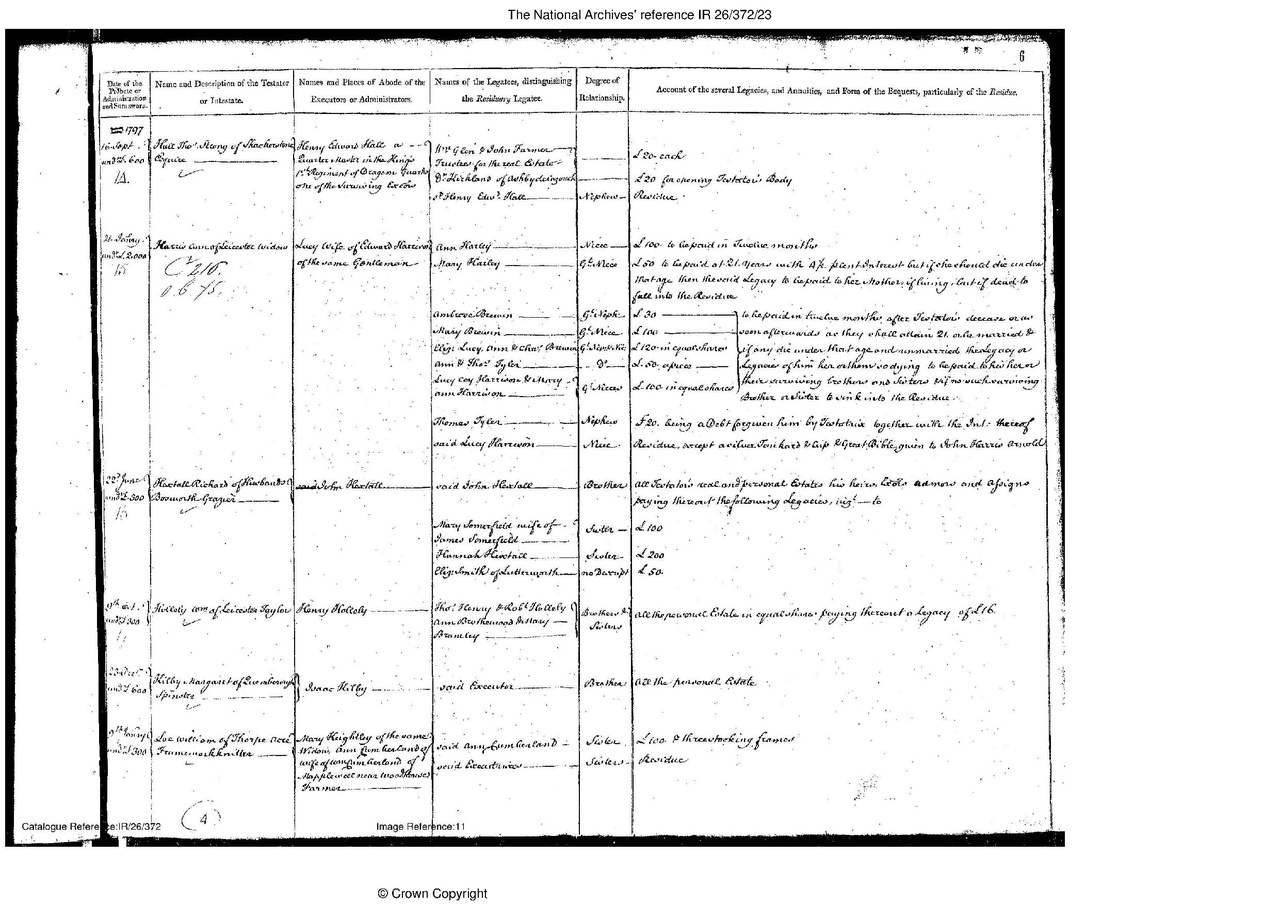 The National Archives' reference IR 26/372/23
6
Date of the Probate or Administration and Sum sworn.
Name and Description of the Testater or Intestate.
Names and Places of Abode of the Executors or Administrators.
Names of the Legatees, distinguishing the Residuary Legatee.
Degree of Relationship.
Account of the several Legacies, and Annuities, and Form of the Bequests, particularly of the Residue.
1797
16 Sept.
undr £600
Hall Thos. Strong of Shackerstone
Esquire
Henry Edward Hall a
Quarter Master in the King's
1st Regiment of Dragoon Guards
one of the surviving Exors
Wm. Glen & John Farmer
Trustees for the real Estate
£20 each
Dr. Kirkland of Ashby de la zouch
£20 for opening Testator's Body
sd. Henry Edwd. Hall
Nephew
Residue
21 Janry.
undr £2,000
Harris Ann of Leicester Widow
Lucy Wife of Edward Harrison
of the same Gentleman
Ann Harley
Niece
£100 to be paid in Twelve months
Mary Harley
Gt. Niece
£50 to be paid at 21 Years with 4 P. Cent Interest but if she should die under
that age then the said Legacy to be paid to her Mother, if living, but if dead to
fall into the Residue
Ambrose Brewin
Gt. Neph.
£30
to be paid in twelve months after Testator's decease or as
Mary Brewin
Gt. Niece
£100
soon afterwards as they shall attain 21. or be married &
Eliz. Lucy, Ann & Chas. Brewin
£120 in equal shares
if any die under that age and unmarried the Legacy or
Ann & Thos. Tyler
Do.
£50 apiece
Legacies of him her or them so dying to be paid to his her or
Lucy Coy Harrison & Mary
Ann Harrison
Gt. Nieces
£100 in equal shares
their surviving brothers and Sisters & if no such surviving
Brother or Sister to sink into the Residue
Thomas Tyler
Nephew
£20. being a Debt forgiven him by Testatrix together with the Int: thereof
said Lucy Harrison
Niece
Residue, except a silver Tankard & Cup & Great Bible given to John Harris Arnold
22d June
undr £300
Hextall Richard of Husbands
Bosworth Grazier
said John Hextall
said John Hextall
Brother
all Testator's real and personal Estates his heirs Exors admors and assigns
paying thereout the following Legacies, vizt. to
Mary Somerfield wife of
James Somerfield
Sister
£100
Hannah Hextall
Sister
£200
Eliz. Smith of Lutterworth
no Descript
£50
9th Oct.
undr £300
Holleby Wm. of Leicester Taylor
Henry Holleby
Thos. Henry & Robt. Holleby
Ann Brotherwood & Mary
Bramley
Brothers &
Sisters
all the personal Estate in equal shares paying thereout a Legacy of £16
23 Decr.
undr £600
Hilby Margaret of Loughborough
Spinster
Isaac Hilby
said Executor
Brother
all the personal Estate
9th Janry.
undr £300
Loe William of Thorpe Acre
Frameworkknitter
Mary Keightley of the same
Widow, Ann Cumberland
wife of Wm Cumberland of
Mapplewell near Woodhouse
Farmer
said Ann Cumberland
Sister
£100 & three stocking frames
said Executrixes
Sisters
Residue
4
Catalogue Reference:IR/26/372
Image Reference:11
© Crown Copyright